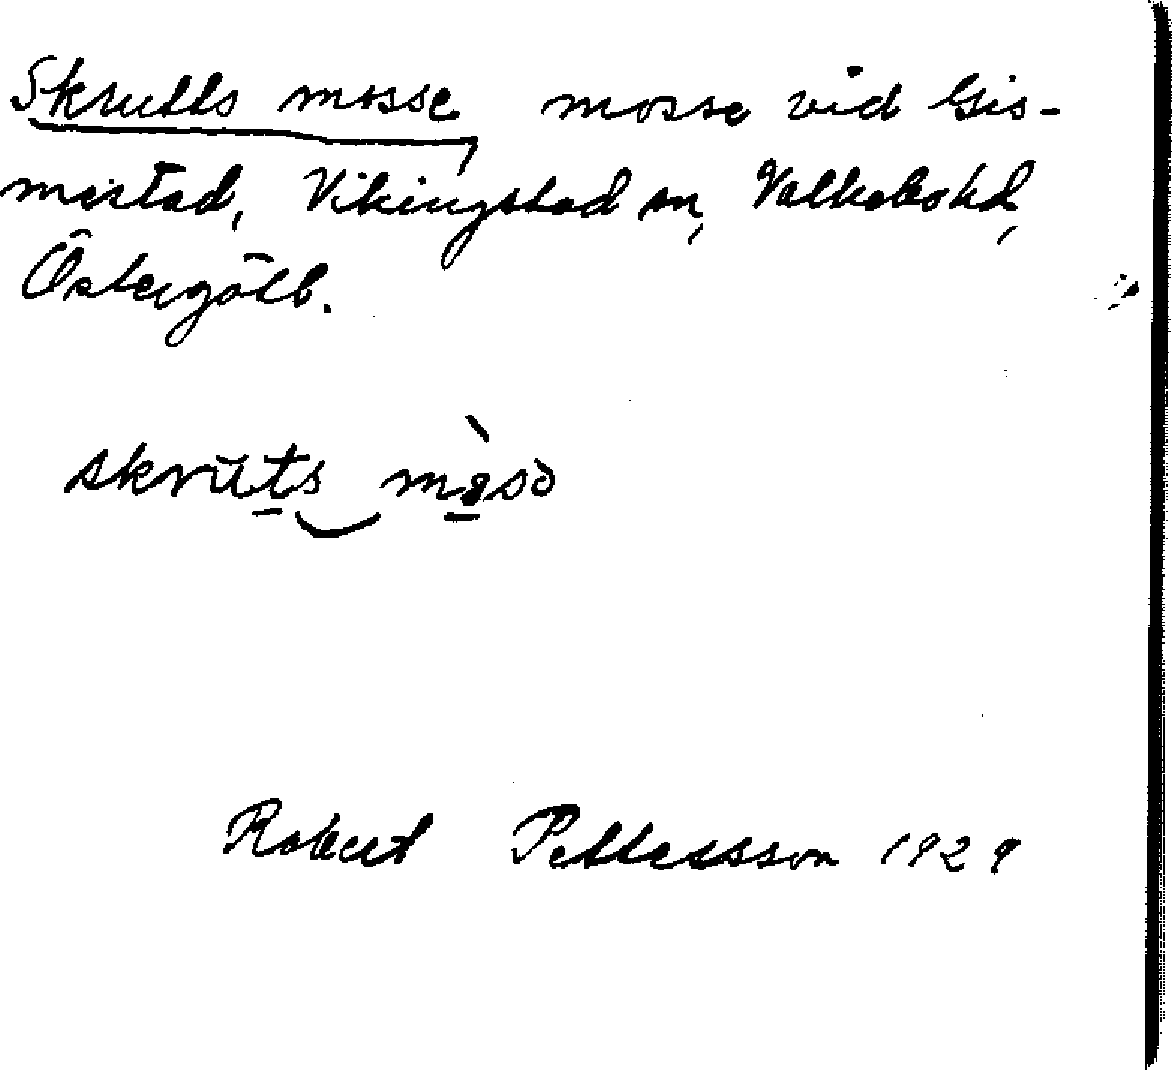 Skrutts mosse, mosse vid Gis-
mestad, Vikingstad sn, Valkebo hd,
Östergötl.
skruts måsɘ
Robert Pettersson 1929